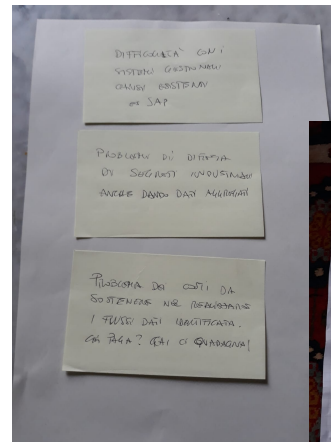 DIFFICOLTÀ CON I
SISTEMI GESTIONALI
ESISTENTI
SAP
PROBLEMI DI DIFESA
DI SEGRETI INDUSTRIALI
ANCHE DANDO DATI AGGREGATI
PROBLEMA DEI COSTI DA
SOSTENERE NEL REALIZZARE
I FLUSSI DATI IDENTIFICATI.
CHI PAGA? CHI CI GUADAGNA?